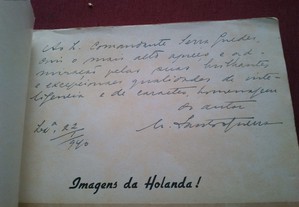 Ao Sr. Comandante Serra Guedes,
com o mais alto apreço e ad-
miração pelas suas brilhantes
e excepcionais qualidades de inte-
ligencia e de caracter, homenagem
do autor
Lxª. 22
940
M. Santos Guerra
Imagens da Holanda!